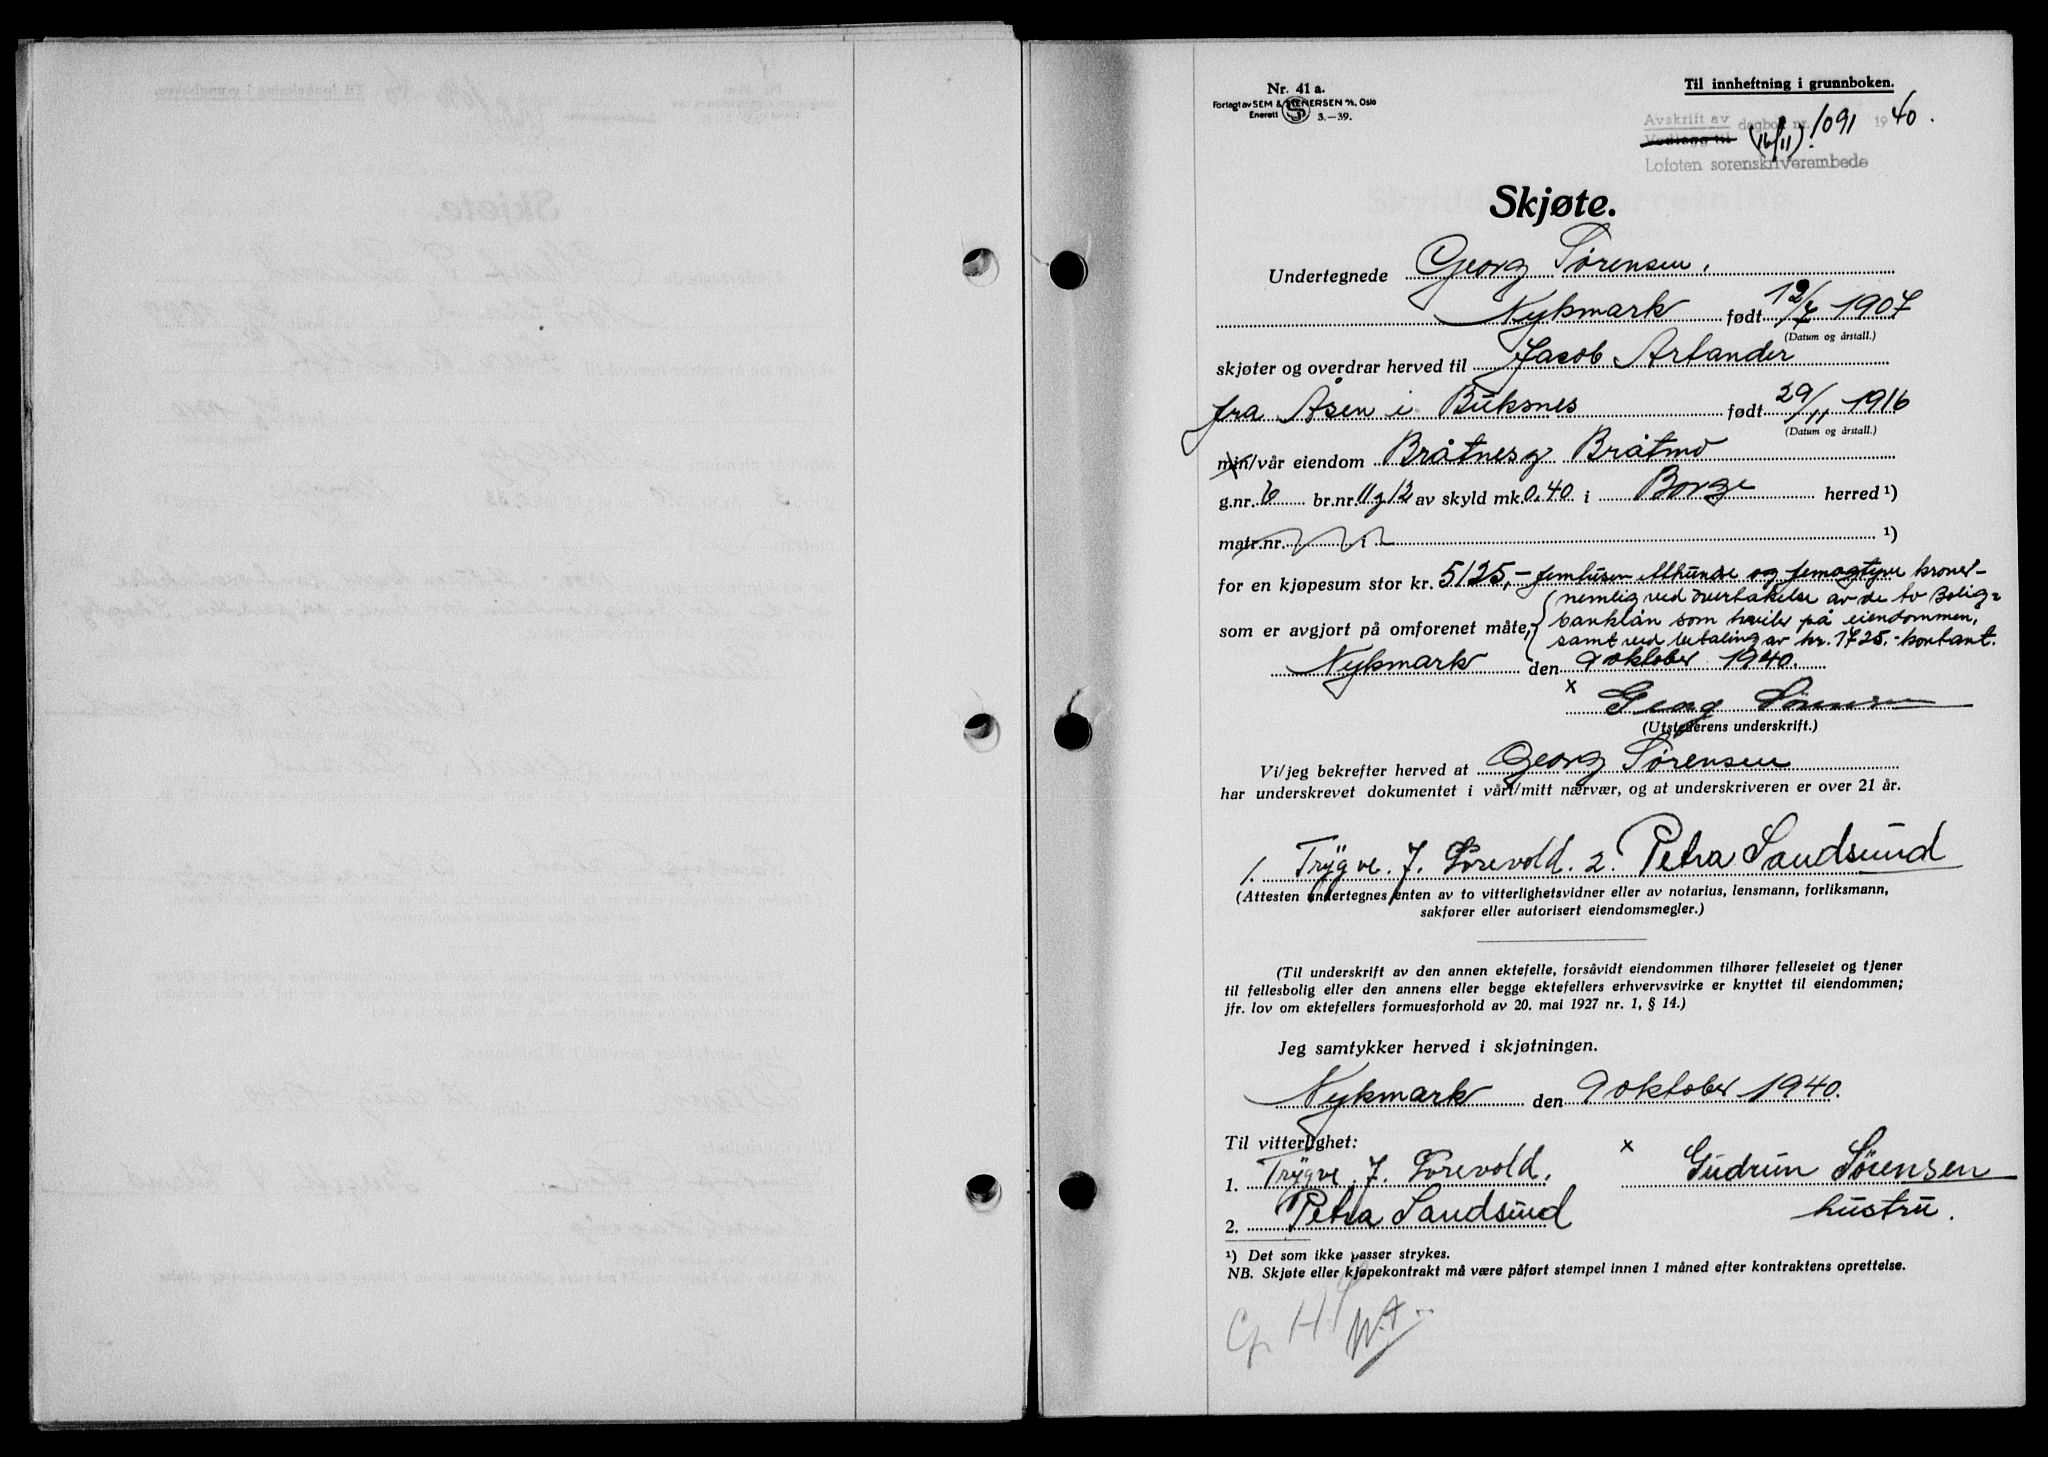 Nr. 41 a.
Forlagt av SEM & STENERSEN A/S, Oslo
Enerett 3.–39.
Til innheftning i grunnboken.
Avskrift av
Vedlegg til dagbok nr. 1091 1940.
(16/11)
Lofoten sorenskriverembede
Skjøte.
Undertegnede Georg Sørensen,
Nykmark født 12/7 1907
(Datum og årstall.)
skjøter og overdrar herved til Jacob Artander
fra Åsen i Buksnes født 29/11 1916
(Datum og årstall.)
min/vår eiendom Bråtnes og Bråtmo
g.nr. 6 br.nr. 11 og 12 av skyld mk. 0.40 i Borge herred ¹)
matr.nr. i ¹)
for en kjøpesum stor kr. 5125,- femtusen etthundre og femogtyve kroner -
nemlig ved overtakelse av de to Bolig=
banklån som hviler på eiendommen,
som er avgjort på omforenet måte, samt ved utbetaling av kr. 1725.- kontant.
Nykmark den 9 oktober 1940.
x Georg Sørensen
(Utstederens underskrift.)
Vi/jeg bekrefter herved at Georg Sørensen
har underskrevet dokumentet i vårt/mitt nærvær, og at underskriveren er over 21 år.
1. Trygve. J. Lorevold. 2. Petra Sandsund
(Attesten undertegnes enten av to vitterlighetsvidner eller av notarius, lensmann, forliksmann,
sakfører eller autorisert eiendomsmegler.)
(Til underskrift av den annen ektefelle, forsåvidt eiendommen tilhører felleseiet og tjener
til fellesbolig eller den annens eller begge ektefellers erhvervsvirke er knyttet til eiendommen;
jfr. lov om ektefellers formuesforhold av 20. mai 1927 nr. 1, § 14.)
Jeg samtykker herved i skjøtningen.
Nykmark den 9 oktober 1940.
Til vitterlighet:
1. Trygve. J. Lorevold. x Gudrun Sørensen
2. Petra Sandsund hustru.
¹) Det som ikke passer strykes.
NB. Skjøte eller kjøpekontrakt må være påført stempel innen 1 måned efter kontraktens oprettelse.